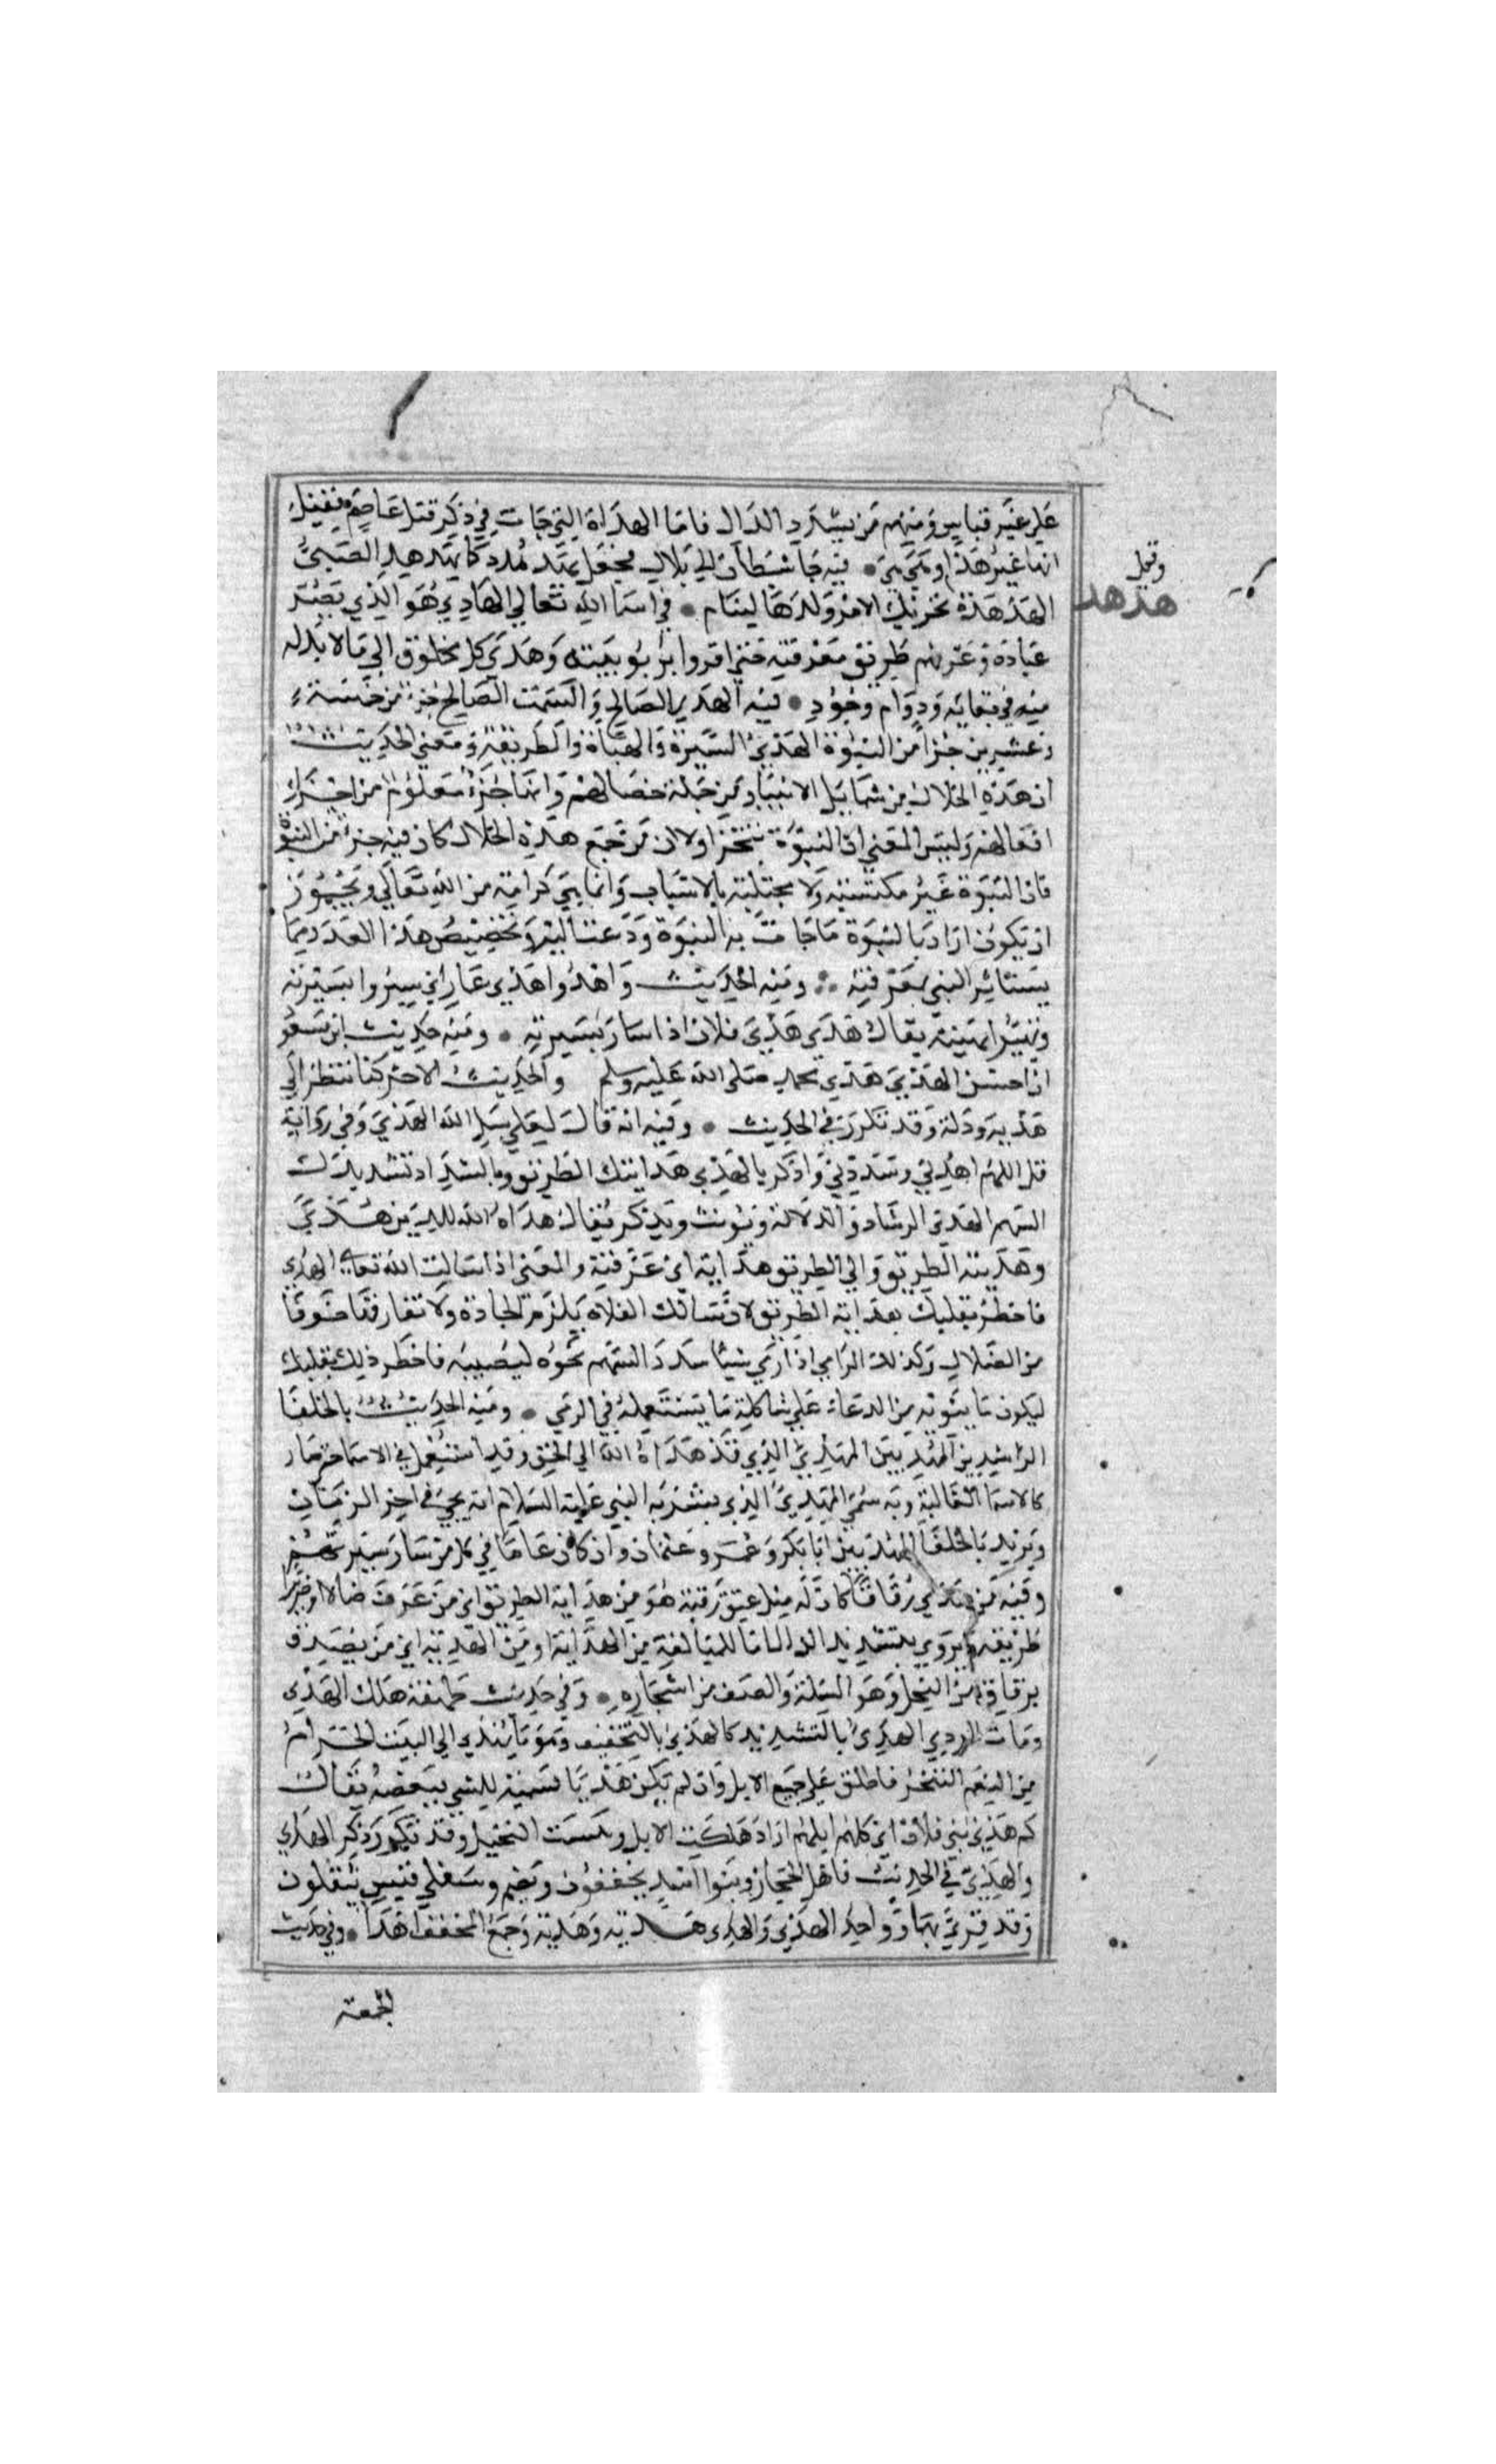 على غير قياس ومنهم من يشدد الدال فاما الهداة التي جات في ذكر قتل عاصم فقيل
انها غير هذا وهي هي • فيه جا شيطان الى بلال فجعل يهدهده كما يهدهد الصبي
الهدهدة تحريك الام ولدها لينام • في اسما الله تعالى الهادي هو الذي بصر
وقيل
هدهد
عباده وعرفهم طريق معرفته حتى اقروا بربوبيته وهدى كل مخلوق الى ما لا بد له
منه في بقائه ودوام وجوده • فيه الهدي الصالح والسمت الصالح جزء من خمسة
وعشرين جزا من النبوة الهدي السيرة والهيأة والطريقة ومعنى الحديث
ان هذه الخلال من شمايل الانبيا ومن جملة خصالهم وانها جزء معلوم من اجزا
افعالهم وليس المعنى ان النبوة تتجزا ولا ان من جمع هذه الخلال كان فيه جزء من النبوة
فان النبوة غير مكتسبة ولا مجتلبة بالاسباب وانما هي كرامة من الله تعالى ويجوز
ان يكون اراد بالنبوة ما جات به النبوة ودعت اليه وتخصيص هذا العدد مما
يستاثر النبي بمعرفته ∴ ومنه الحديث واهدوا هدي عمار اي سيروا بسيرته
وتهيؤا بهيئته يقال هدى هدي فلان اذا سار بسيرته • ومنه حديث ابن مسعو
ان احسن الهدي هدي محمد صلى الله عليه وسلم والحديث الاخر كنا ننظر الى
هديه ودله وقد تكرر في الحديث • وفيه انه قال لعلي سل الله الهدي وفي رواية
قل اللهم اهدني وسددني واذكر بالهدى هدايتك الطريق وبالسداد تسديدك
السهم الهدى الرشاد والدلالة ويونث ويذكر يقال هداه الله للدين هدى
وهديته الطريق والى الطريق هداية اي عرفته والمعنى اذا سالت الله تعالى الهدى
فاخطر بقلبك هداية الطريق لان سالك الفلاة يلزم الجادة ولا تفارقها خوفا
من الضلال وكذلك الرامي اذا رمى شيئا سدد السهم نحوه ليصيبه فاخطر ذلك بقلبك
ليكون ما ينويه من الدعاء على شاكلة ما يستعمله في الرمي • ومنه الحديث بالخلفا
الراشدين المهديين المهدي الذي قد هداه الله الى الحق وقد استعمل في الاسما حتى صار
كالاسما الغالبة وبه سمي المهدي الذي بشر به النبي عليه السلام انه يجي في اخر الزمان
ويريد بالخلفا المهديين ابا بكر وعمر وعثمان وان كان عاما في كل من سار سيرتهم
وفيه من هدى زقاقا كان له مثل عتق رقبة هو من هداية الطريق اي من عرف ضالا او ضريرا
طريقه ويروى بتشديد الدال اما للمبالغة من الهداية او من الهدية اي من تصدق
بزقاق من النخل وهو السكة والصف من اشجاره • وفي حديث طهفة هلك الهدي
ومات الودي الهدي بالتشديد كالهدي بالتخفيف وهو ما يهدى الى البيت الحرام
من النعم لتنحر فاطلق على جميع الابل وان لم تكن هديا تسمية للشي ببعضه يقال
كم هدي بني فلان اي كم ابلهم اراد هلكت الابل ويبست النخيل وقد تكرر ذكر الهدي
والهدي في الحديث فاهل الحجاز وبنوا اسد يخففون وتميم وسفلى قيس يثقلون
وقد قرئ بهما وواحد الهدي والهدي هدية وهدية وجمع المخفف اهدا • وفي حديث
الجمعة